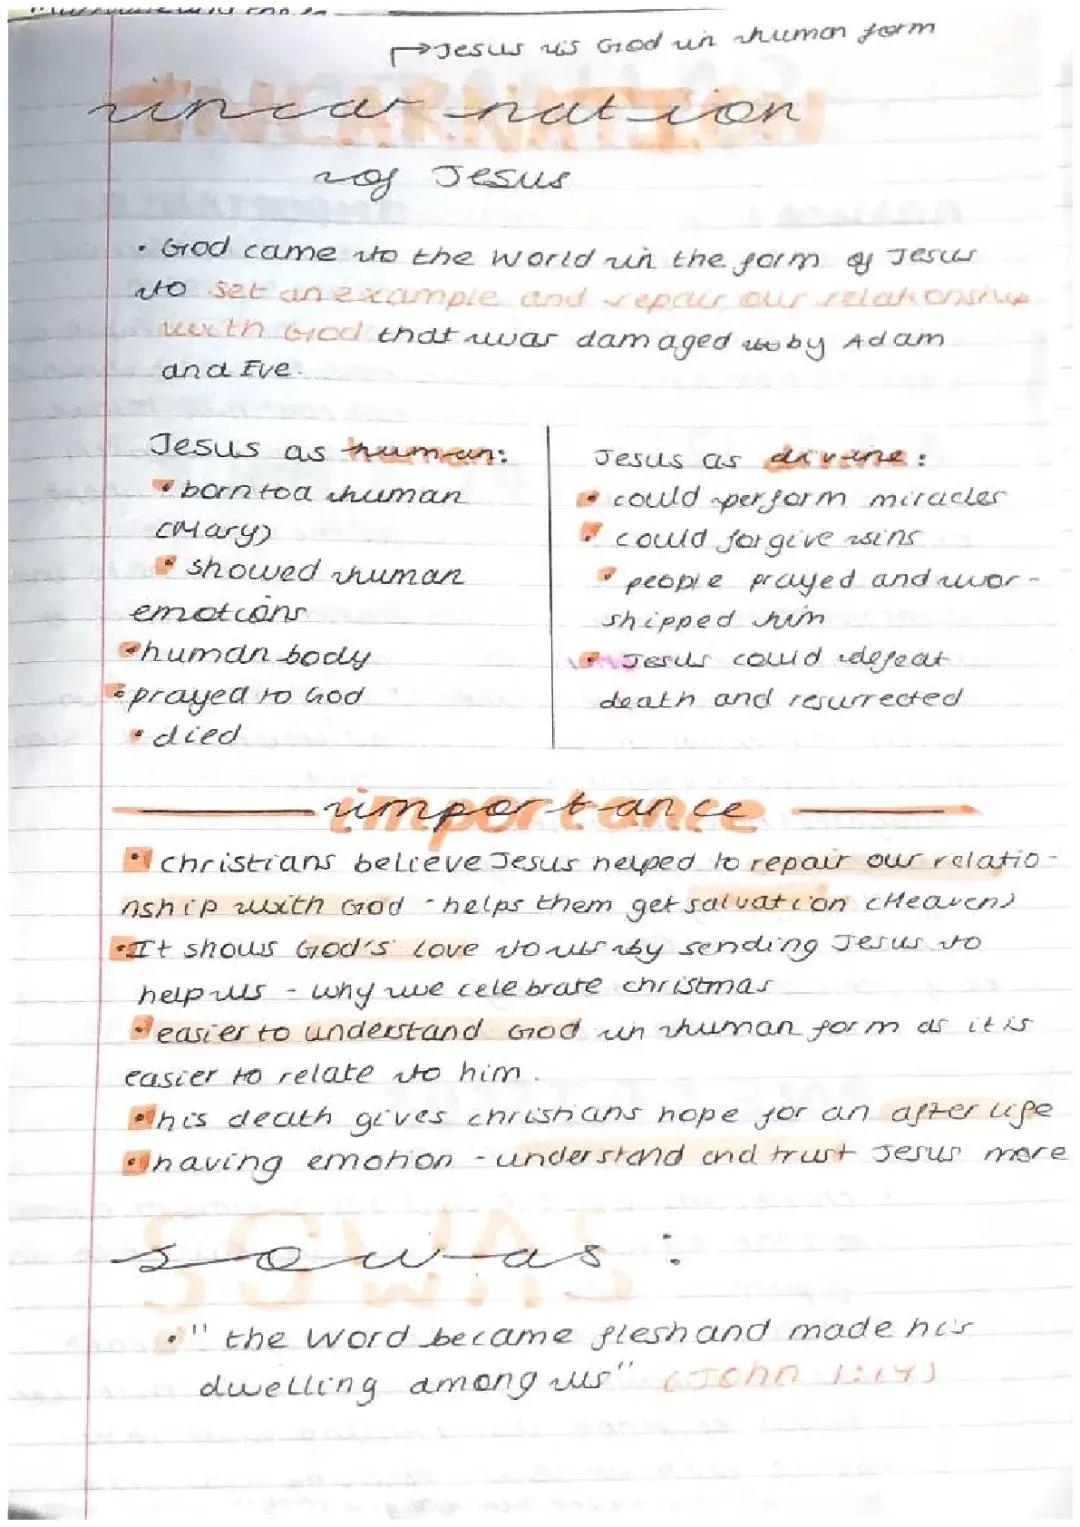 →Jesus is God in human form
incarnation
of Jesus
• God came to the world in the form of Jesus
to set an example and repair our relationship
with God that was damaged by Adam
and Eve.
Jesus as human:
• born to a human
(Mary)
• showed human
emotions
• human body
• prayed to God
• died
Jesus as divine:
• could perform miracles
• could forgive sins
• people prayed and wor-
shipped him
• Jesus could defeat
death and resurrected
importance
• christians believe Jesus helped to repair our relatio-
nship with God - helps them get salvation (Heaven)
• It shows God's love to us by sending Jesus to
help us - why we celebrate christmas
• easier to understand God in human form as it is
easier to relate to him.
• his death gives christians hope for an after life
• having emotion - understand and trust Jesus more
sowas:
• " the Word became flesh and made his
dwelling among us" (John 1:14)